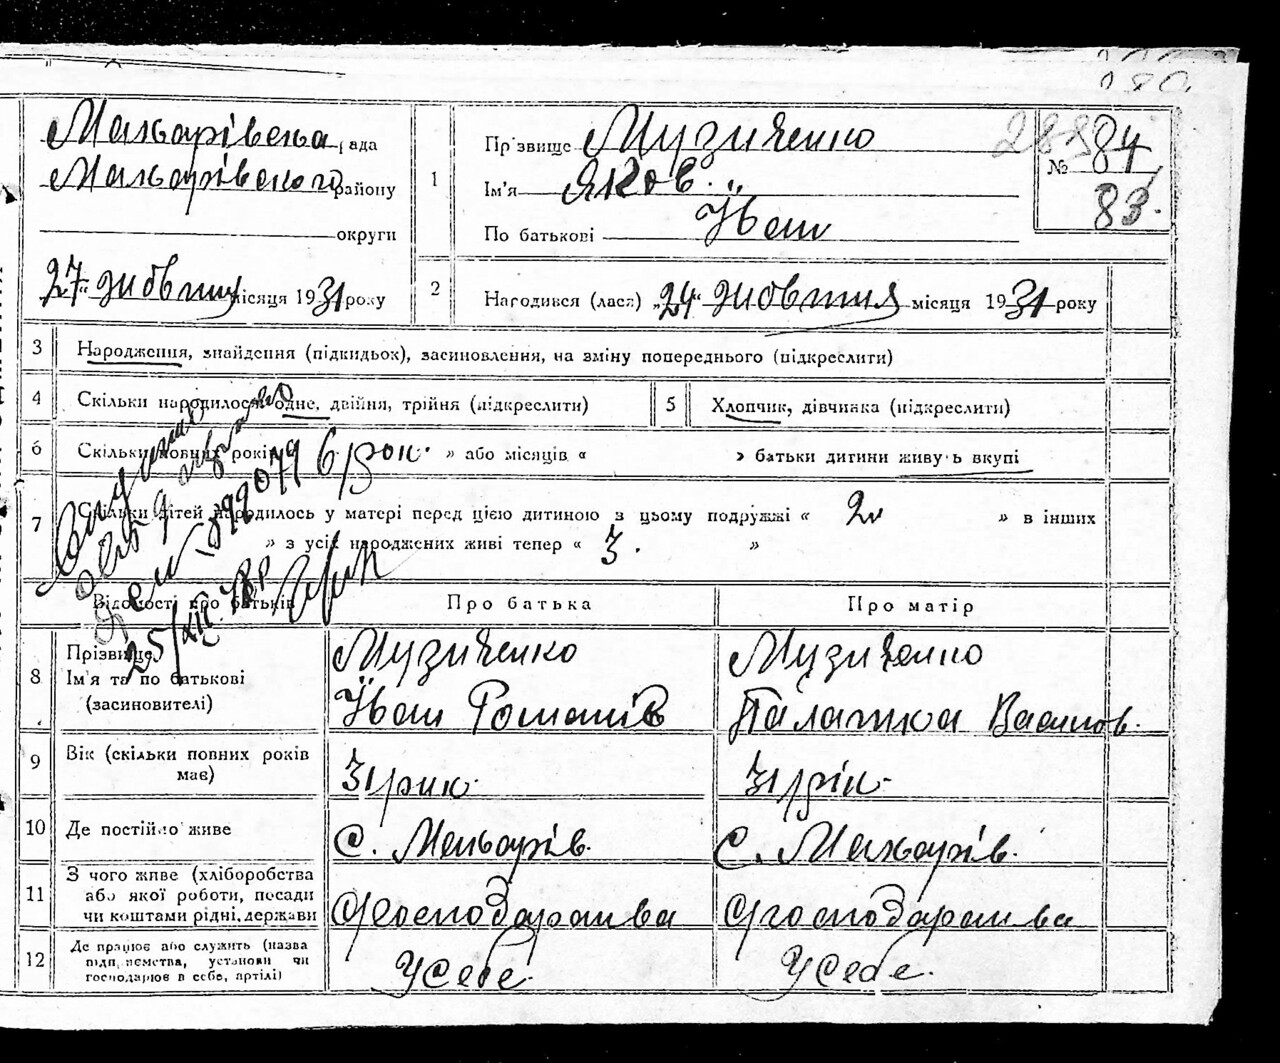 Макарівська рада
Макарівського району
округи
„27“ жовтня місяця 1931 року
1
Прізвище Музиченко
Ім'я Яков
По батькові Іван
№ 84
83.
2
Народився (лася) „24“ жовтня місяця 1931 року
3 Народження, знайдення (підкидьок), засиновлення, на зміну попереднього (підкреслити)
4 Скільки народилося: одне, двійня, трійня (підкреслити)
5 Хлопчик, дівчинка (підкреслити)
6 Скільки повних років 6 рок. » або місяців « » батьки дитини живуть вкупі
7 Скільки дітей народилось у матері перед цією дитиною з цьому подружжі « 2 » в інших
» з усіх народжених живі тепер « 3. »
099079
25/XII
Відомості про батьків
Про батька
Про матір
8
Прізвище,
Ім'я та по батькові
(засиновителі)
Музиченко
Іван Романів
Музиченко
Палажка Васильов.
9
Вік (скільки повних років
має)
31 рик.
31 рік.
10 Де постійно живе
с. Макарів.
с. Макарів.
11
З чого живе (хліборобства
або якої роботи, посади
чи коштами рідні, держави
Господарства
Господарства
12
Де працює або служить (назва
підприємства, установи чи
господарює в себе, артілі)
У себе.
У себе.